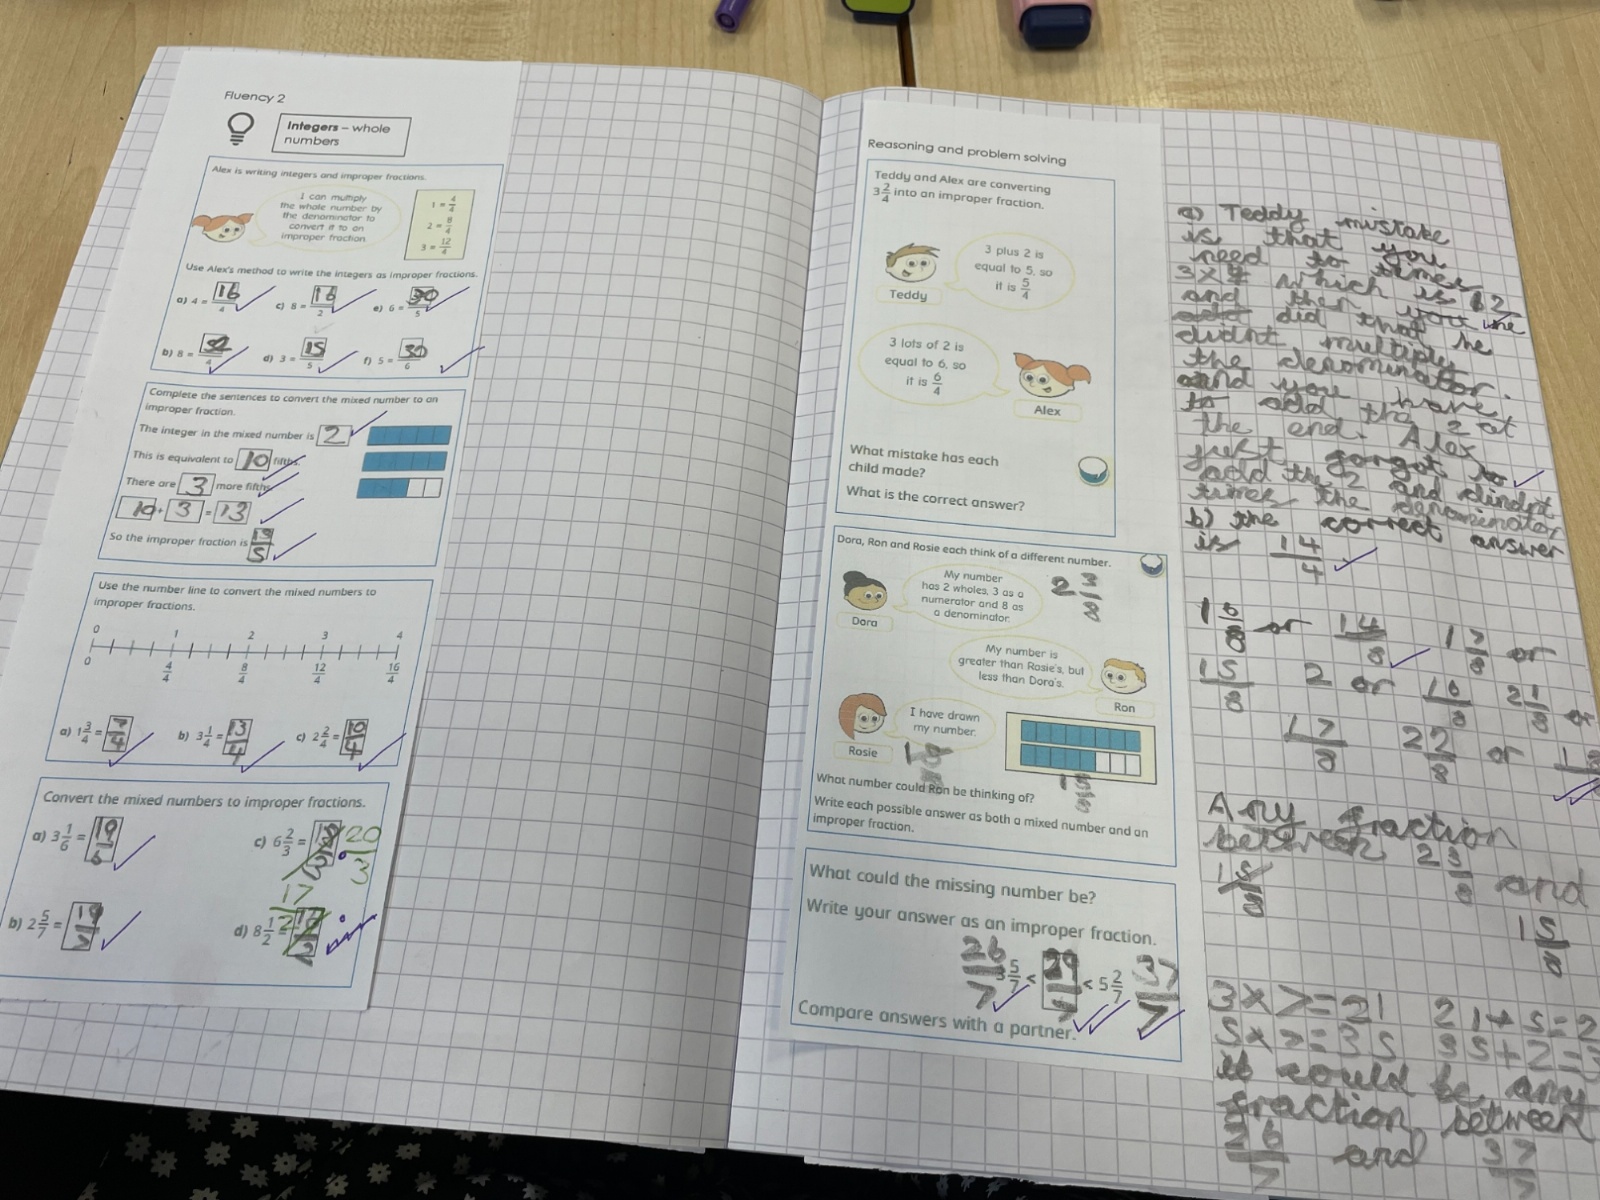 Fluency 2
Integers – whole
numbers
Alex is writing integers and improper fractions.
I can multiply
the whole number by
the denominator to
convert it to an
improper fraction
1 = 4/4
2 = 8/4
3 = 12/4
Use Alex's method to write the integers as improper fractions.
a) 4 = 16/4 c) 8 = 16/2 e) 6 = 30/5
b) 8 = 32/4 d) 3 = 15/5 f) 5 = 30/6
Complete the sentences to convert the mixed number to an
improper fraction.
The integer in the mixed number is 2
This is equivalent to 10 fifths.
There are 3 more fifths.
10 + 3 = 13
So the improper fraction is 13/5
Use the number line to convert the mixed numbers to
improper fractions.
0 1 2 3 4
0 4/4 8/4 12/4 16/4
a) 1 3/4 = 7/4 b) 3 1/4 = 13/4 c) 2 2/4 = 10/4
Convert the mixed numbers to improper fractions.
a) 3 1/6 = 19/6 c) 6 2/3 = 20/3
b) 2 5/7 = 19/7 d) 8 1/2 = 17/2
Reasoning and problem solving
Teddy and Alex are converting
3 2/4 into an improper fraction.
3 plus 2 is
equal to 5, so
it is 5/4
Teddy
3 lots of 2 is
equal to 6, so
it is 6/4
Alex
What mistake has each
child made?
What is the correct answer?
Dora, Ron and Rosie each think of a different number.
My number
has 2 wholes, 3 as a
numerator and 8 as
a denominator.
2 3/8
Dora
My number is
greater than Rosie's, but
less than Dora's.
Ron
I have drawn
my number.
Rosie
What number could Ron be thinking of?
Write each possible answer as both a mixed number and an
improper fraction.
What could the missing number be?
Write your answer as an improper fraction.
26/7 3 5/7 < 29/7 < 5 2/7 37/7
Compare answers with a partner.
a) Teddy mistake
is that you
need to times
3 x 4 which is 12
and then you
did that he
didnt multiply
the denominator.
and you have
to add the 2 at
the end. Alex
just forgot to
add the 2 and dindnt
times the denominator
b) the correct answer
is 14/4
1 6/8 or 14/8 1 7/8 or
15/8 2 or 16/8 2 1/8 or
17/8 2 2/8 or
Any fraction
between 2 3/8 and
15/8
3 x 7 = 21 21 + 5 = 2
5 x 7 = 35 35 + 2 = 3
it could be any
fraction between
26/7 and 37/7